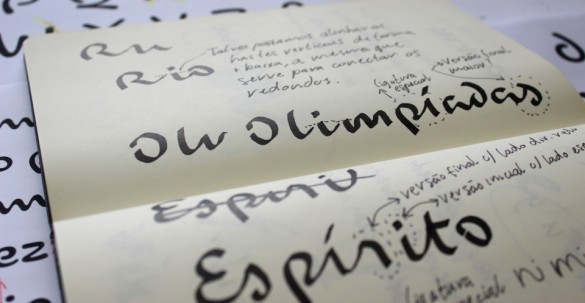 Ru
Rio
Talvez possamos alinhar as
hastes verticais de forma
+ baixa, a mesma que
serve para conectar os
redondos.
ligatura
especial
versão final
maior
Olu Olimpíadas
Espiri
versão final c/ lado dir.
versão inicial c/ lado
Espírito
ligatura
nim